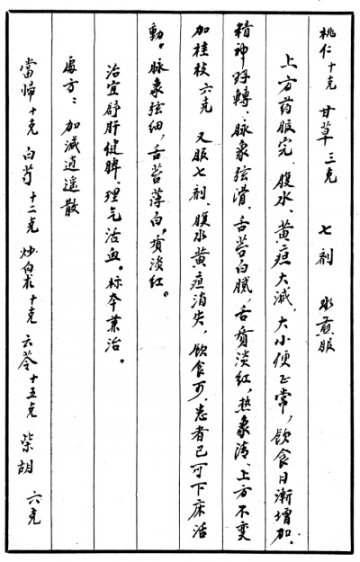 桃仁十克 甘草三克 七剂 水煎服
上方药服完、腹水、黄疸大减、大小便正常，饮食日渐增加.
精神好轉、脉象弦滑、舌苔白腻，舌質淡红，热象清、上方不变
加桂枝六克 又服七剂、腹水黄疸消失，飲食可、患者已可下床活
動。脉象弦细，舌苔薄白，質淡红。
治宜舒肝健脾、理气活血。标本兼治。
處方：加減逍遥散
當帰十克 白芍十二克 炒白术十克 云苓十五克 柴胡 六克